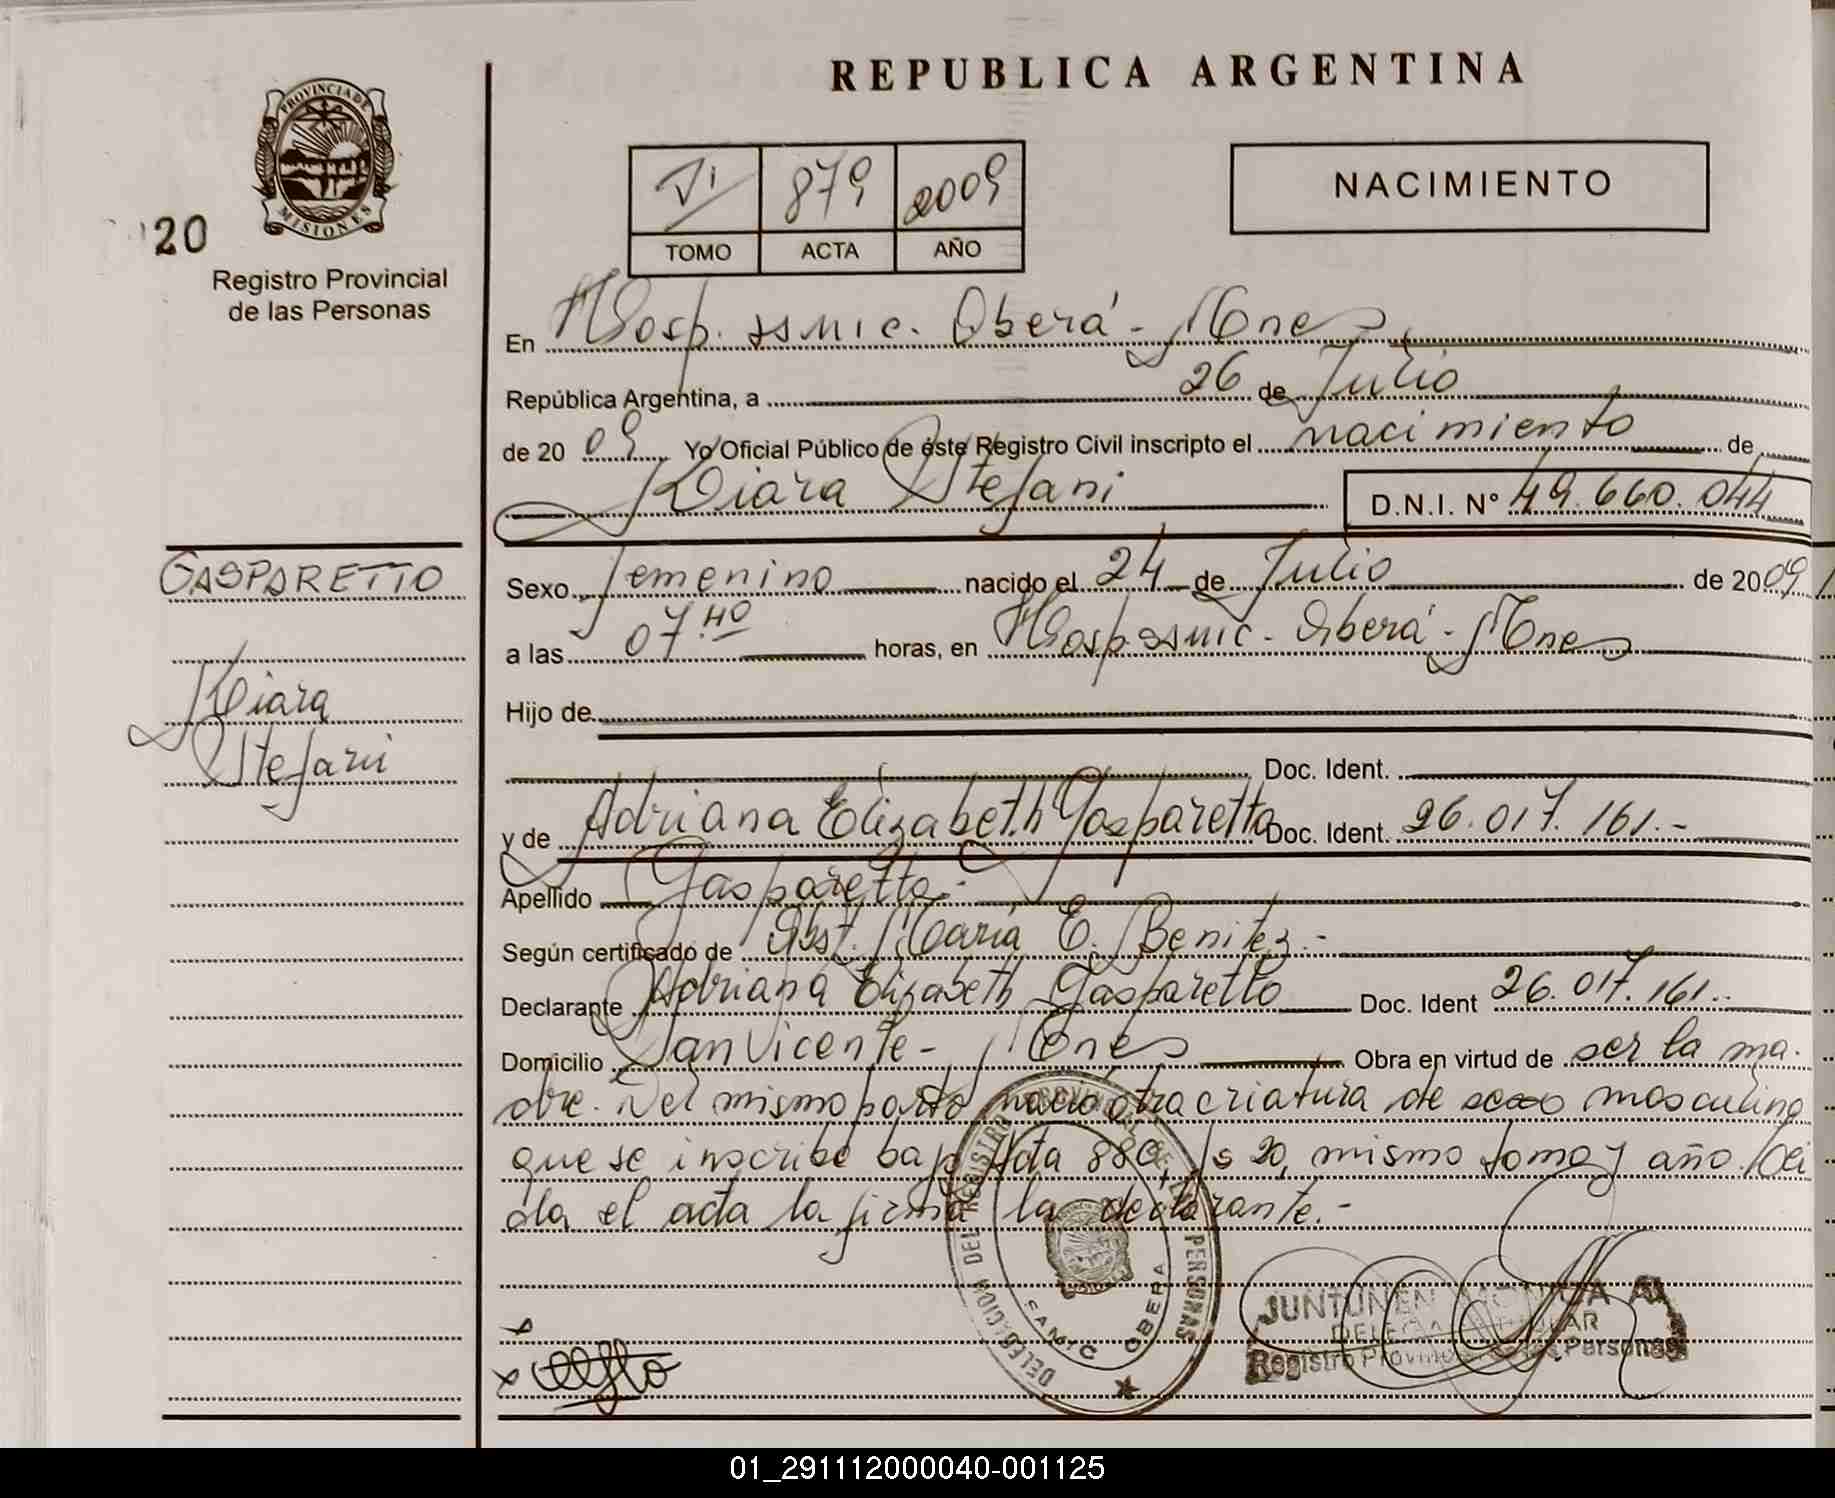 REPUBLICA ARGENTINA
PROVINCIA DE
MISIONES
20
Registro Provincial
de las Personas
VI 879 2009
TOMO ACTA AÑO
NACIMIENTO
En Hosp. ssmic. Oberá - Mnes
República Argentina, a 26 de Julio
de 2009 Yo Oficial Público de éste Registro Civil inscripto el nacimiento de
Kiara Stefani D.N.I. Nº 49.660.044
GASPARETTO
Kiara
Stefani
Sexo femenino nacido el 24 de Julio de 2009
a las 07.40 horas, en Hosp. ssmic - Oberá - Mnes
Hijo de
Doc. Ident.
y de Adriana Elizabeth Gasparetto Doc. Ident. 26.017.161.-
Apellido Gasparetto.-
Según certificado de Obst. María E. Benitez.-
Declarante Adriana Elizabeth Gasparetto Doc. Ident 26.017.161.-
Domicilio San Vicente - Mnes Obra en virtud de ser la ma-
dre. Del mismo parto nació otra criatura de sexo masculino
que se inscribe bajo Acta 880, fs 20, mismo tomo y año. Leí
da el acta la firma la declarante.-
DELEGACION DEL REGISTRO PROVINCIAL DE LAS PERSONAS
SAMIC OBERA
JUNTUNEN MONICA A.
DELEGADA TITULAR
Registro Provincial de las Personas
01_291112000040-001125